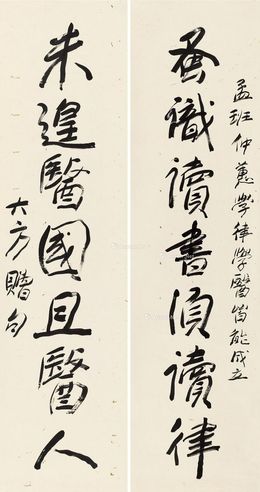 孟班仲蕙学律学醫皆能成立
蚤識讀書須讀律
未遑醫國且醫人
大方贈句